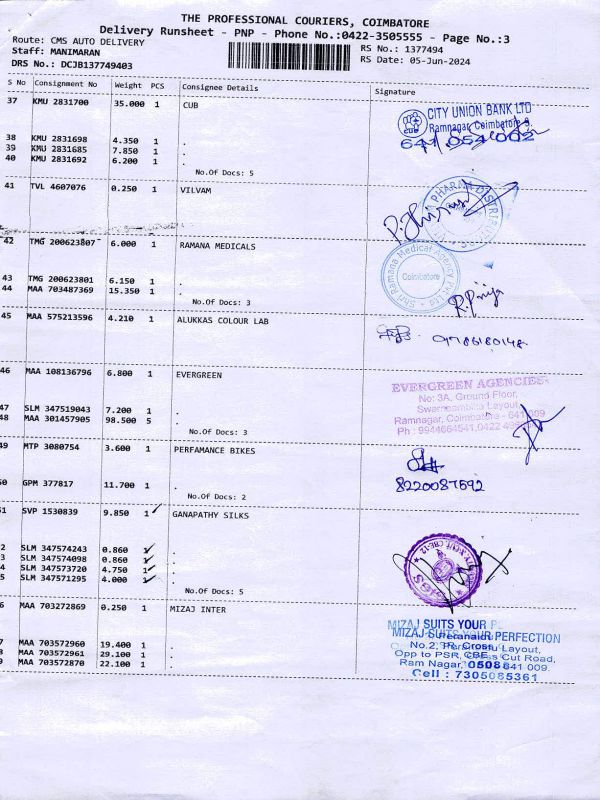 THE PROFESSIONAL COURIERS, COIMBATORE
Delivery Runsheet - PNP - Phone No.:0422-3505555 - Page No.:3
Route: CMS AUTO DELIVERY
Staff: MANIMARAN
DRS No.: DCJB137749403
RS No.: 1377494
RS Date: 05-Jun-2024
S No Consignment No Weight PCS Consignee Details Signature
37 KMU 2831700 35.000 1 CUB
CITY UNION BANK LTD
Ramnagar, Coimbatore 9.
38 KMU 2831698 4.350 1 .
39 KMU 2831685 7.850 1 .
40 KMU 2831692 6.200 1 .
No.Of Docs: 5
41 TVL 4607076 0.250 1 VILVAM
PHARMA DISTRIBUTORS
42 TMG 200623807 6.000 1 RAMANA MEDICALS
Shri Ramana Medical Agency Pvt Ltd
Coimbatore
43 TMG 200623801 6.150 1 .
44 MAA 703487369 15.350 1 .
No.Of Docs: 3
R. Priya
45 MAA 575213596 4.210 1 ALUKKAS COLOUR LAB
46 MAA 108136796 6.800 1 EVERGREEN
EVERGREEN AGENCIES
No: 3A, Ground Floor,
Layout,
Ramnagar, Coimbatore - 641 009
Ph : 9944664541, 0422
47 SLM 347519043 7.200 1 .
48 MAA 301457905 98.500 5 .
No.Of Docs: 3
49 MTP 3080754 3.600 1 PERFAMANCE BIKES
50 GPM 377817 11.700 1 .
No.Of Docs: 2
8220087692
51 SVP 1530839 9.850 1 GANAPATHY SILKS
2 SLM 347574243 0.860 1 .
3 SLM 347574098 0.860 1 .
4 SLM 347573720 4.750 1 .
5 SLM 347571295 4.000 1 .
No.Of Docs: 5
6 MAA 703272869 0.250 1 MIZAJ INTER
MIZAJ SUITS YOUR
MIZAJ SUITS YOUR PERFECTION
No.2, Layout,
Opp to PSR, Cut Road,
Ram Nagar, 641 009.
Cell : 7305085361
7 MAA 703572960 19.400 1 .
8 MAA 703572961 29.100 1 .
9 MAA 703572870 22.100 1 .